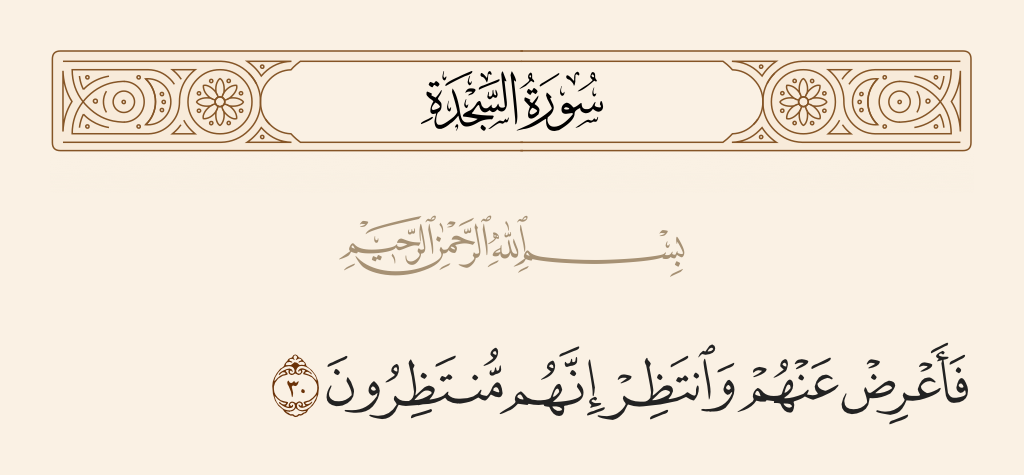 سُورَةُ السَّجْدَةِ
بِسْمِ ٱللَّهِ ٱلرَّحْمَٰنِ ٱلرَّحِيمِ
فَأَعْرِضْ عَنْهُمْ وَٱنتَظِرْ إِنَّهُم مُّنتَظِرُونَ ٣٠